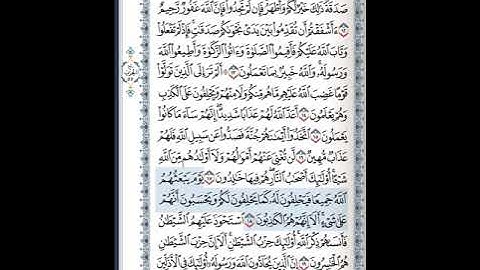 صَدَقَةً ذَٰلِكَ خَيْرٌ لَّكُمْ وَأَطْهَرُ فَإِن لَّمْ تَجِدُوا۟ فَإِنَّ ٱللَّهَ غَفُورٌ رَّحِيمٌ
١٢ ءَأَشْفَقْتُمْ أَن تُقَدِّمُوا۟ بَيْنَ يَدَىْ نَجْوَىٰكُمْ صَدَقَـٰتٍ فَإِذْ لَمْ تَفْعَلُوا۟
وَتَابَ ٱللَّهُ عَلَيْكُمْ فَأَقِيمُوا۟ ٱلصَّلَوٰةَ وَءَاتُوا۟ ٱلزَّكَوٰةَ وَأَطِيعُوا۟ ٱللَّهَ
وَرَسُولَهُۥ وَٱللَّهُ خَبِيرٌۢ بِمَا تَعْمَلُونَ ١٣ أَلَمْ تَرَ إِلَى ٱلَّذِينَ تَوَلَّوْا۟
قَوْمًا غَضِبَ ٱللَّهُ عَلَيْهِم مَّا هُم مِّنكُمْ وَلَا مِنْهُمْ وَيَحْلِفُونَ عَلَى ٱلْكَذِبِ
وَهُمْ يَعْلَمُونَ ١٤ أَعَدَّ ٱللَّهُ لَهُمْ عَذَابًا شَدِيدًا إِنَّهُمْ سَآءَ مَا كَانُوا۟
يَعْمَلُونَ ١٥ ٱتَّخَذُوٓا۟ أَيْمَـٰنَهُمْ جُنَّةً فَصَدُّوا۟ عَن سَبِيلِ ٱللَّهِ فَلَهُمْ
عَذَابٌ مُّهِينٌ ١٦ لَّن تُغْنِىَ عَنْهُمْ أَمْوَٰلُهُمْ وَلَآ أَوْلَـٰدُهُم مِّنَ ٱللَّهِ
شَيْـًٔا أُو۟لَـٰٓئِكَ أَصْحَـٰبُ ٱلنَّارِ هُمْ فِيهَا خَـٰلِدُونَ ١٧ يَوْمَ يَبْعَثُهُمُ
ٱللَّهُ جَمِيعًا فَيَحْلِفُونَ لَهُۥ كَمَا يَحْلِفُونَ لَكُمْ وَيَحْسَبُونَ أَنَّهُمْ
عَلَىٰ شَىْءٍ أَلَآ إِنَّهُمْ هُمُ ٱلْكَـٰذِبُونَ ١٨ ٱسْتَحْوَذَ عَلَيْهِمُ ٱلشَّيْطَـٰنُ
فَأَنسَىٰهُمْ ذِكْرَ ٱللَّهِ أُو۟لَـٰٓئِكَ حِزْبُ ٱلشَّيْطَـٰنِ أَلَآ إِنَّ حِزْبَ ٱلشَّيْطَـٰنِ
هُمُ ٱلْخَـٰسِرُونَ ١٩ إِنَّ ٱلَّذِينَ يُحَآدُّونَ ٱللَّهَ وَرَسُولَهُۥٓ أُو۟لَـٰٓئِكَ فِى ٱلْأَذَلِّينَ